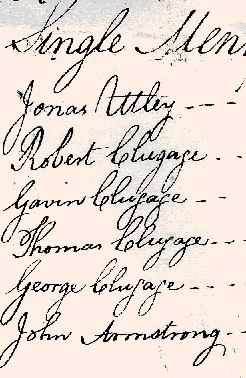 Single Men,
Jonas Utley ---
Robert Clugage --
Gavin Clugage --
Thomas Clugage --
George Clugage ---
John Armstrong --